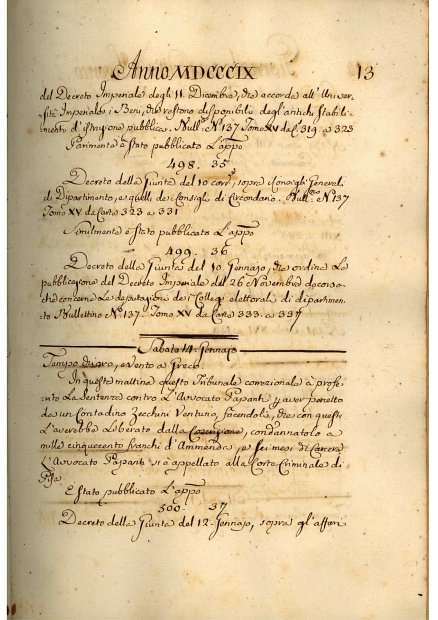 Anno MDCCCIX 13
del Decreto Imperiale degli 11. Dicembre, che accorda all'Univer-
sità Imperiale i Beni, che restono disponibili degl'antichi stabili-
mento d'istruzione pubblica. Bull.º Nº 137 Tomo XV da C. 319. a 323
Parimente è stato pubblicato L'appo
498. 35
Decreto della Giunta del 10 corr.e, sopra i Consigli Generali
di Dipartimento, e quelli dei Consigli di Circondario. Bull.º Nº 137
Tomo XV da Carte 323 a 331
Similmente è stato pubblicato L'appo
499. 36
Decreto della Giunta del 10. Gennajo, che ordina La
pubblicazione del Decreto Imperiale del 26 Novembre decorso
che concerne Le deputazione dei Collegi elettorali di dipartimen-
to Bullettino Nº 137. Tomo XV da Carte 333. a 337
Sabato 14. Gennajo
Tempo, e vento a Greco.
In questa mattina questo Tribunale correzionale à profe-
rito La sentenza contro L'Avvocato Papanti p aver ponetto
da un Contadino Zecchini Ventuno, facendoli, che con questi
L'averebbe Liberato dalla Coscrizione, condannatolo a
mille cinquecento franchi d'Ammenda, e sei mesi di Carcere
L'Avvocato Papanti si è appellato alla Corte Criminale di
Pisa.
E stato pubblicato L'appo
500. 37
Decreto della Giunta del 12. Gennajo, sopra gl'affari